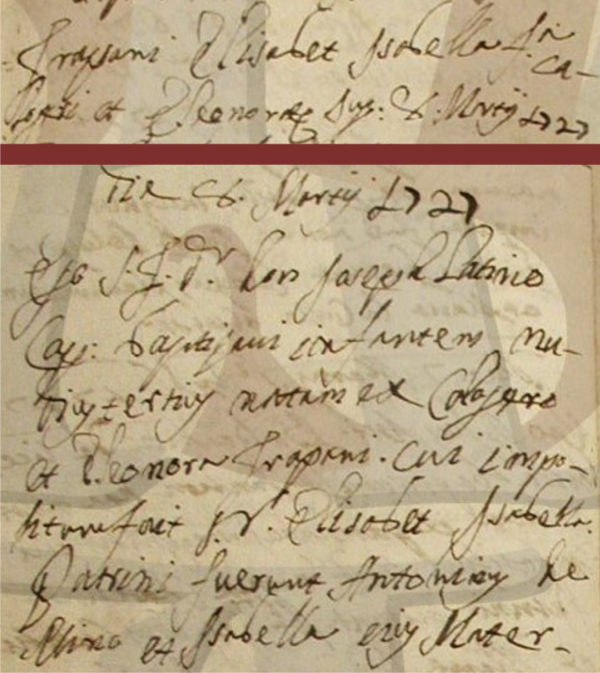 Trapani Elisabet Isabella f.a Ca-
logeri et Eleonoræ sup: 8. Martij 1727
Die 8. Martij 1727
Ego S.J.Dr Don Joseph Latino
Cap: baptizaui infantem nu-
diustertius natam ex Calogero
et Eleonora Trapani. cui impo-
situm fuit N. Elisabet Isabella.
Patrini fuerunt Antonius de
et Isabella eius Mater-